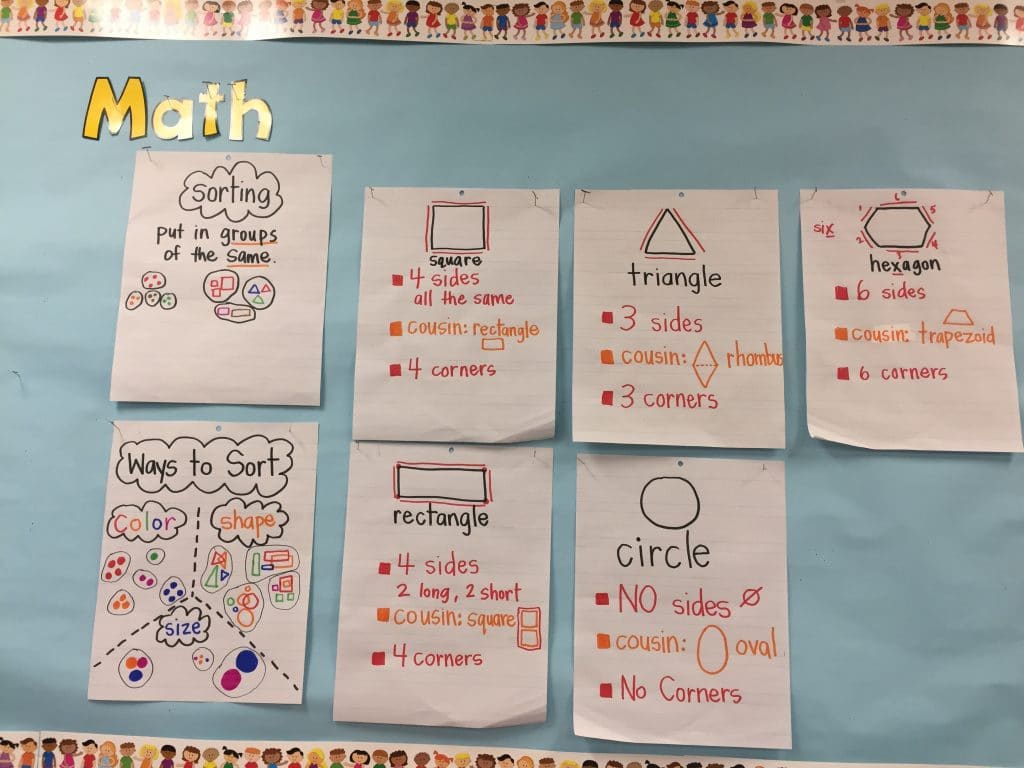 Math
Sorting
put in groups
of the same.
Ways to Sort
color
shape
size
square
4 sides
all the same
cousin: rectangle
4 corners
rectangle
4 sides
2 long, 2 short
cousin: square
4 corners
triangle
3 sides
cousin: rhombus
3 corners
circle
NO sides Ø
cousin: oval
No Corners
six
1 2 3 4 5 6
hexagon
6 sides
cousin: trapezoid
6 corners